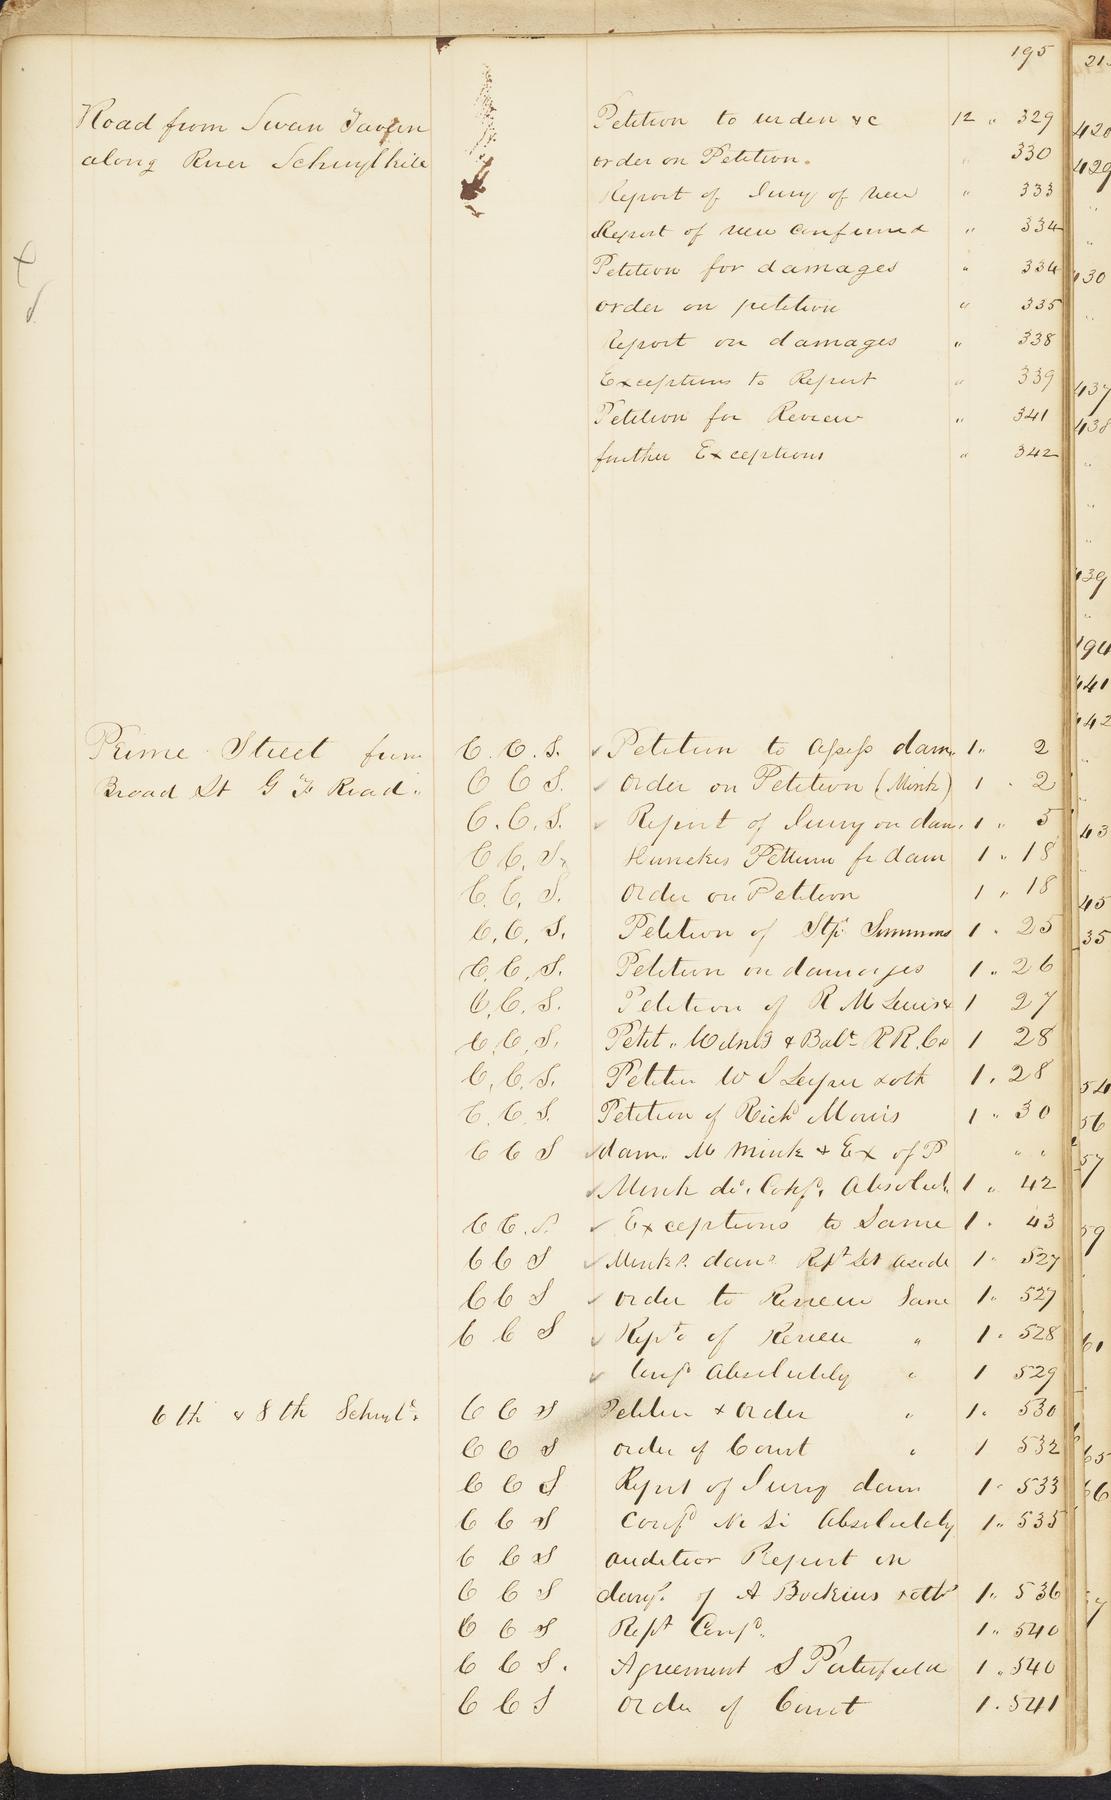 195
Road from Swan Tavern Petition to widen &c 12 " 329
along River Schuylkill order on Petition. " 330
Report of Jury of View " 333
Report of view confirmed " 334
Petition for damages " 334
order on petition " 335
Report on damages " 338
Exceptions to Report " 339
Petition for Review " 341
further Exceptions " 342
Prime Street from C. C. S. Petition to assess dam. 1 " 2
Broad St G F Road. C C S. order on Petition (Mink) 1 " 2
C. C. S. Report of Jury on dam. 1 " 5
C C. S. Petition fr dam 1 " 18
C. C. S. order on Petition 1 " 18
C, C, S. Petition of Simmons 1 " 25
C, C, S. Petition on damages 1 " 26
C, C, S. Petition of R M Lewis & 1 27
C, C, S. Petit. & Balt R R. Co 1 28
C, C. S. Petition W & oth 1 . 28
C. C. S. Petition of Richd 1 " 30
C C S dam. M Mink & Ex of P " "
Mink do. Confd. Absolut. 1 " 42
C C. S. Exceptions to Same 1 . 43
C C S Minks dam Rept Set aside 1 " 527
C C S order to Review Same 1 " 527
C C S Rept of Review " 1 . 528
Confd Absolutely " 1 529
6th & 8th Schuyl. C C S Petition & order " 1 . 530
C C S order of Court " 1 532
C C S Report of Jury dam 1 " 533
C C S Confd Ni Si Absolutely 1 " 535
C C S auditor Report on
C C S damg. of A Bockius & oth 1 " 536
C C S Rept Confd. 1 " 540
C C S. Agreement S Porterfield 1 " 540
C C S order of Court 1 . 541